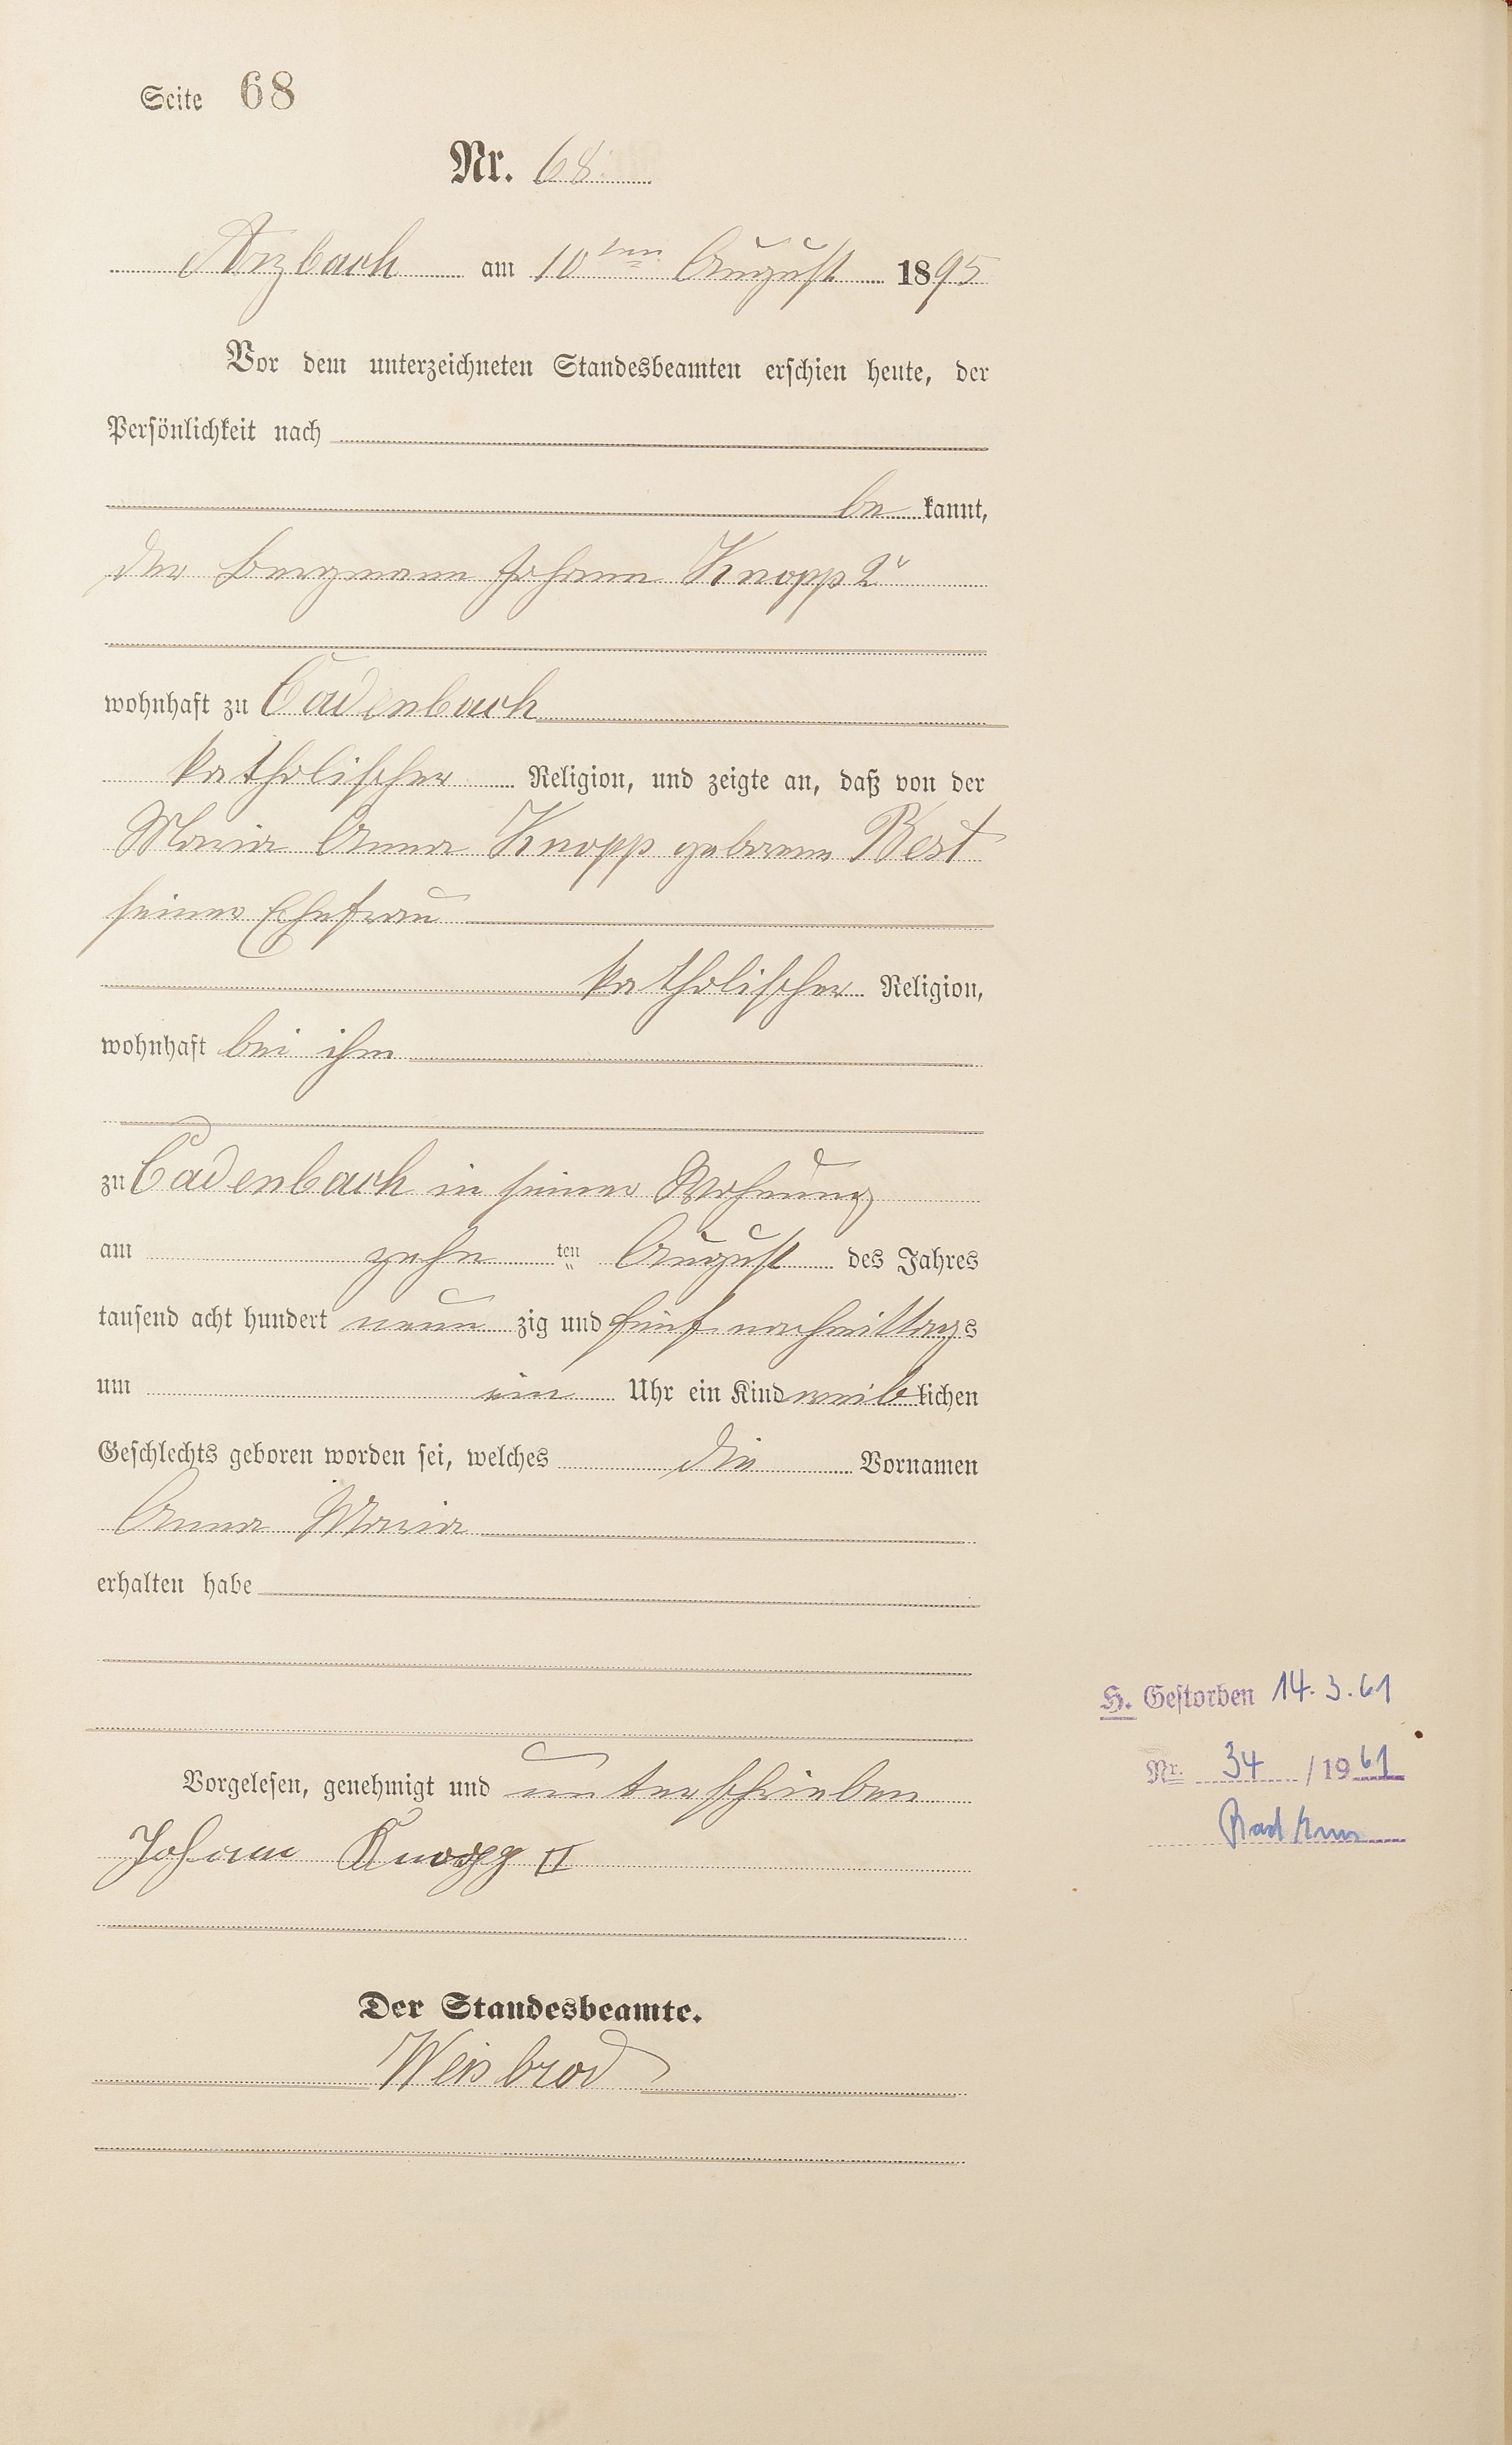 Seite 68
Nr. 68.
Arzbach am 10ten August 1895
Vor dem unterzeichneten Standesbeamten erschien heute, der
Persönlichkeit nach
be kannt,
der Bergmann Johann Knopp 2r
wohnhaft zu Cadenbach
katholischer Religion, und zeigte an, daß von der
Maria Anna Knopp geborene Best
seiner Ehefrau
katholischer Religion,
wohnhaft bei ihm
zu Cadenbach in seiner Wohnung
am zehn ten August des Jahres
tausend acht hundert neun zig und fünf nachmittags
um ein Uhr ein Kind weiblichen
Geschlechts geboren worden sei, welches die Vornamen
Anna Maria
erhalten habe
H. Gestorben 14.3.61
Nr. 34 /1961
Bad Ems
Vorgelesen, genehmigt und unterschrieben
Johann Knopp II
Der Standesbeamte.
Weisbrod